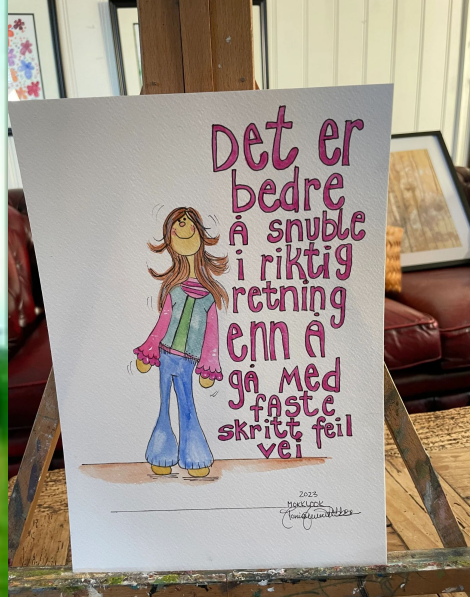 Det er
bedre
å snuble
i riktig
retning
enn å
gå med
faste
skritt feil
vei
2023